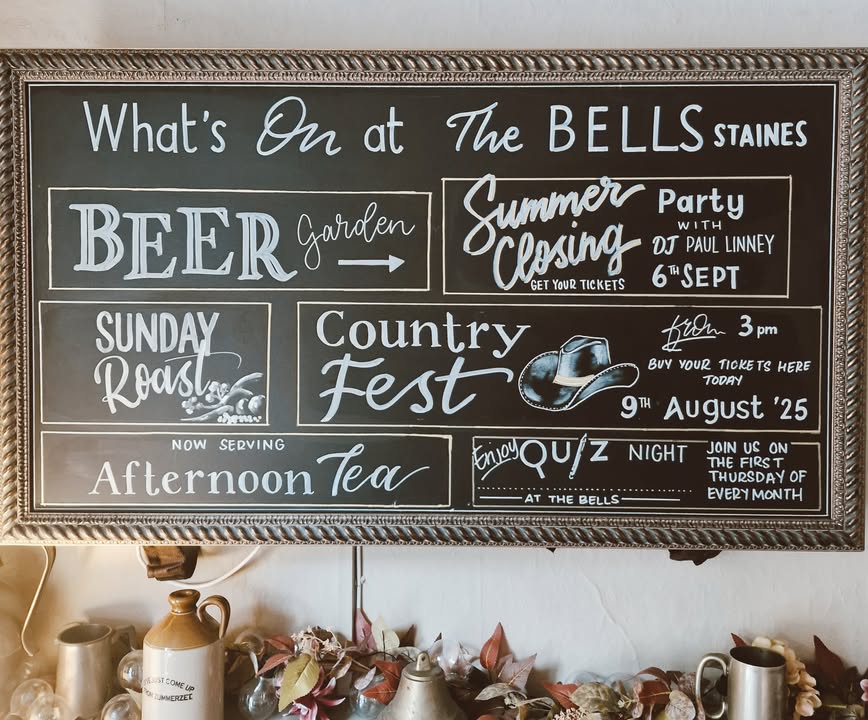 What's On at The BELLS STAINES
BEER Garden
Summer
Closing
GET YOUR TICKETS
Party
WITH
DJ PAUL LINNEY
6TH SEPT
SUNDAY
Roast
Country
Fest
From 3pm
BUY YOUR TICKETS HERE
TODAY
9TH August '25
NOW SERVING
Afternoon Tea
Enjoy QUIZ NIGHT
AT THE BELLS
JOIN US ON
THE FIRST
THURSDAY OF
EVERY MONTH
JUST COME UP
ZUMMERZET